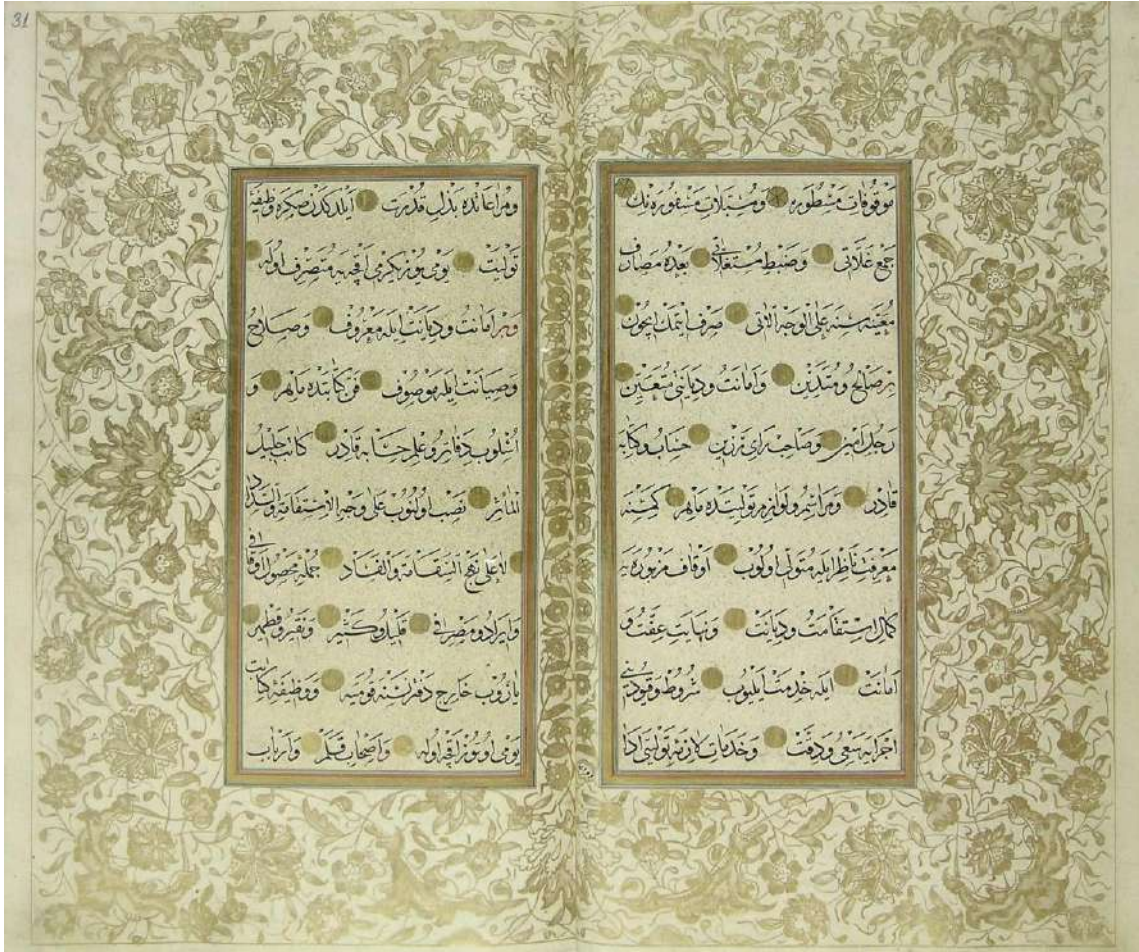 31
موقوفات مسطوره و مسبلات مسفوره نك
جمع غلاتی و ضبط مستغلاتی بعده مصارف
معینه سنه علی الوجه الاتی صرف ایتمك ایچون
بر صالح و متدین و امانت و دیانتی متعین
رجل امین و صاحب رای رزین حساب و كتابه
قادر و مراسم و لوازم تولیتده ماهر كمسنه
معرفت ناظر ایله متولی اولوب اوقاف مزبوره یه
كمال استقامت و دیانت و نهایت عفت و
امانت ایله خدمت ایلیوب شروط و قیودینی
اجرایه سعی و دقت و خدمات لازمه تولیتی ادا
و مراعاتده بذل قدرت ایلدكدن صكره وظیفۀ
تولیت یومی یوز یكرمی اقچه یه متصرف اوله
و بر امانت و دیانت ایله معروف و صلاح
و صیانت ایله موصوف فن كتابتده ماهر و
اسلوب دفاتر و علم حسابه قادر كاتب جلیل
المآثر نصب اولنوب علی وجه الاستقامة والسداد
لا علی نهج السقامة والفساد جمله محصول اوقافی
و ایراد و مصرفی قلیل و كثیر و نقیر و قطمیر
یازوب خارج دفتر نسنه قومیه و وظیفۀ كتابت
یومی اوتوز اقچه اوله و اصحاب قلم و ارباب